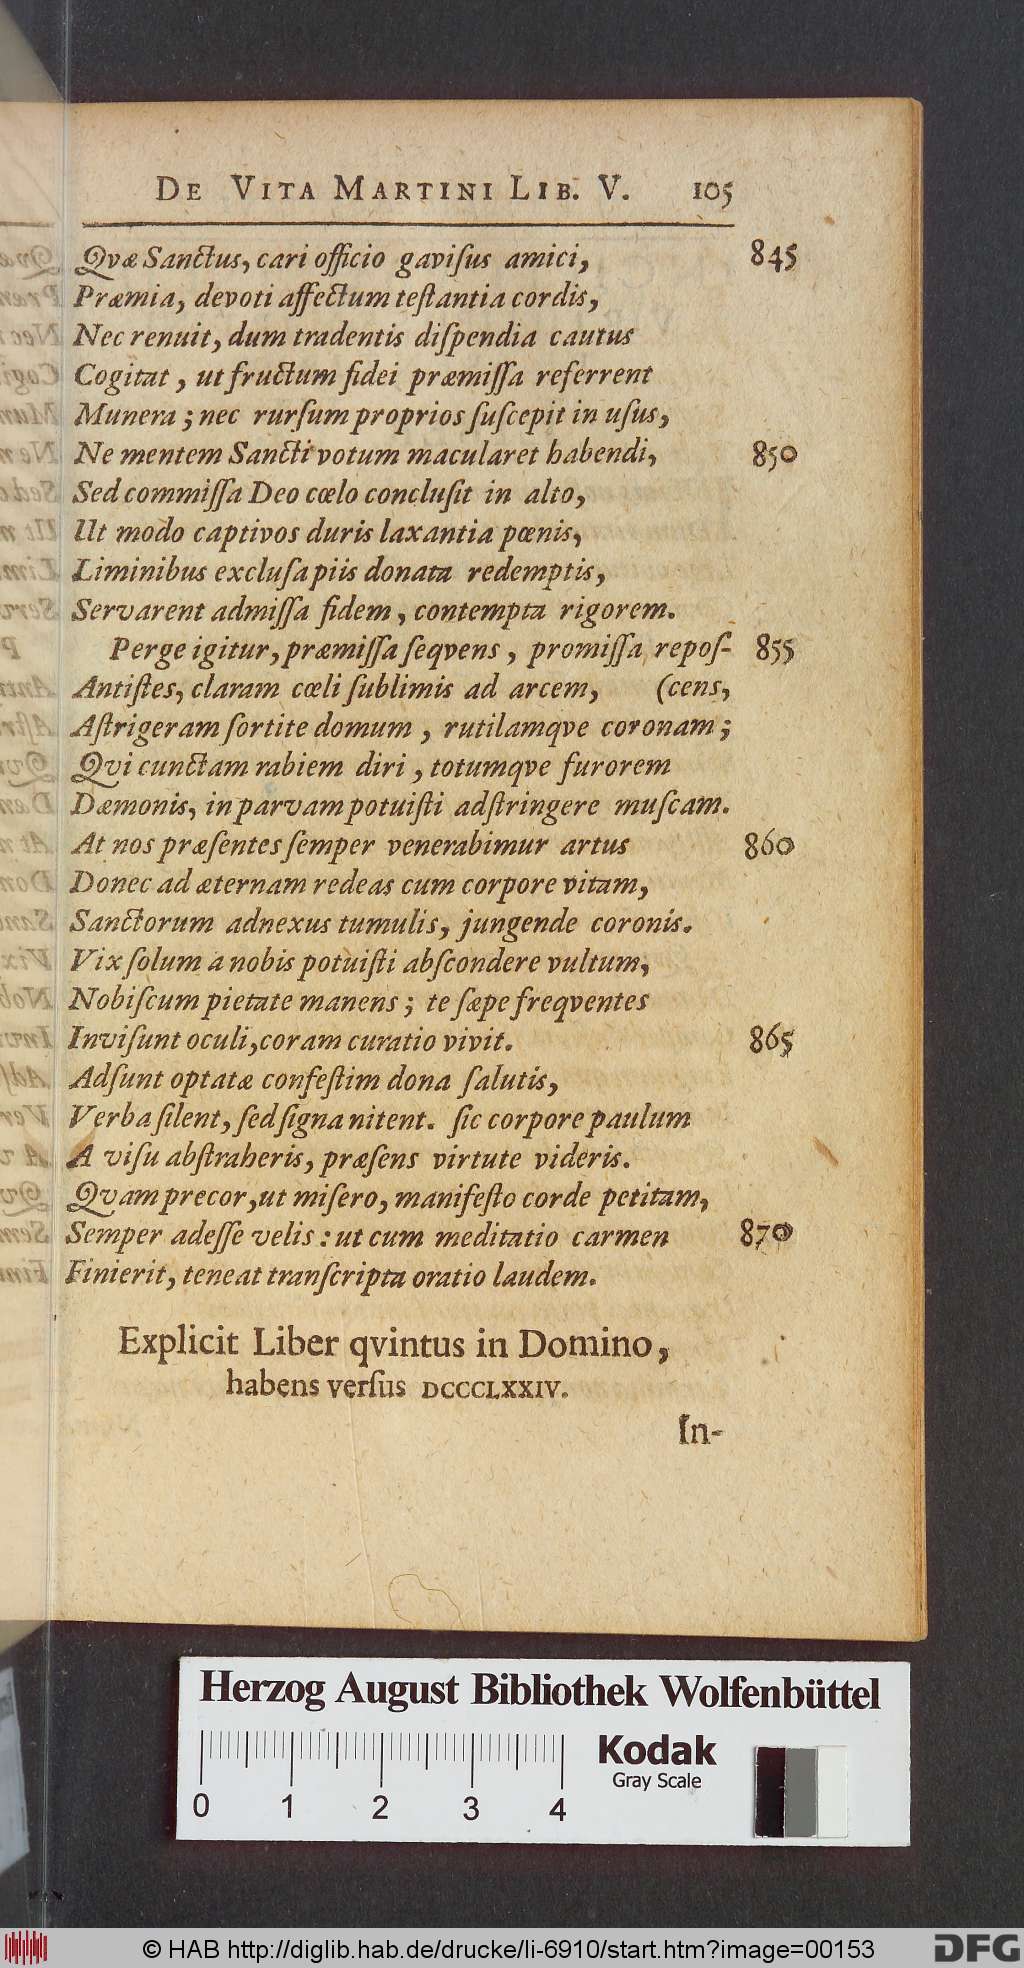 DE VITA MARTINI LIB. V. 105
Qvæ Sanctus, cari officio gaviſus amici, 845
Præmia, devoti affectum teſtantia cordis,
Nec renuit, dum tradentis diſpendia cautus
Cogitat, ut fructum fidei præmiſſa referrent
Munera; nec rurſum proprios ſuſcepit in uſus,
Ne mentem Sancti votum macularet habendi, 850
Sed commiſſa Deo cœlo concluſit in alto,
Ut modo captivos duris laxantia pœnis,
Liminibus excluſa piis donata redemptis,
Servarent admiſſa fidem, contempta rigorem.
Perge igitur, præmiſſa ſeqvens, promiſſa repoſ- 855
Antiſtes, claram cœli ſublimis ad arcem, (cens,
Aſtrigeram ſortite domum, rutilamqve coronam;
Qvi cunctam rabiem diri, totumqve furorem
Dæmonis, in parvam potuiſti adſtringere muſcam.
At nos præſentes ſemper venerabimur artus 860
Donec ad æternam redeas cum corpore vitam,
Sanctorum adnexus tumulis, jungende coronis.
Vix ſolum a nobis potuiſti abſcondere vultum,
Nobiſcum pietate manens; te ſæpe freqventes
Inviſunt oculi, coram curatio vivit. 865
Adſunt optatæ confeſtim dona ſalutis,
Verba ſilent, ſed ſigna nitent. ſic corpore paulum
A viſu abſtraheris, præſens virtute videris.
Qvam precor, ut miſero, manifeſto corde petitam,
Semper adeſſe velis: ut cum meditatio carmen 870
Finierit, teneat tranſcripta oratio laudem.
Explicit Liber qvintus in Domino,
habens verſus DCCCLXXIV.
In-
Herzog August Bibliothek Wolfenbüttel
Kodak
Gray Scale
0 1 2 3 4
© HAB http://diglib.hab.de/drucke/li-6910/start.htm?image=00153
DFG